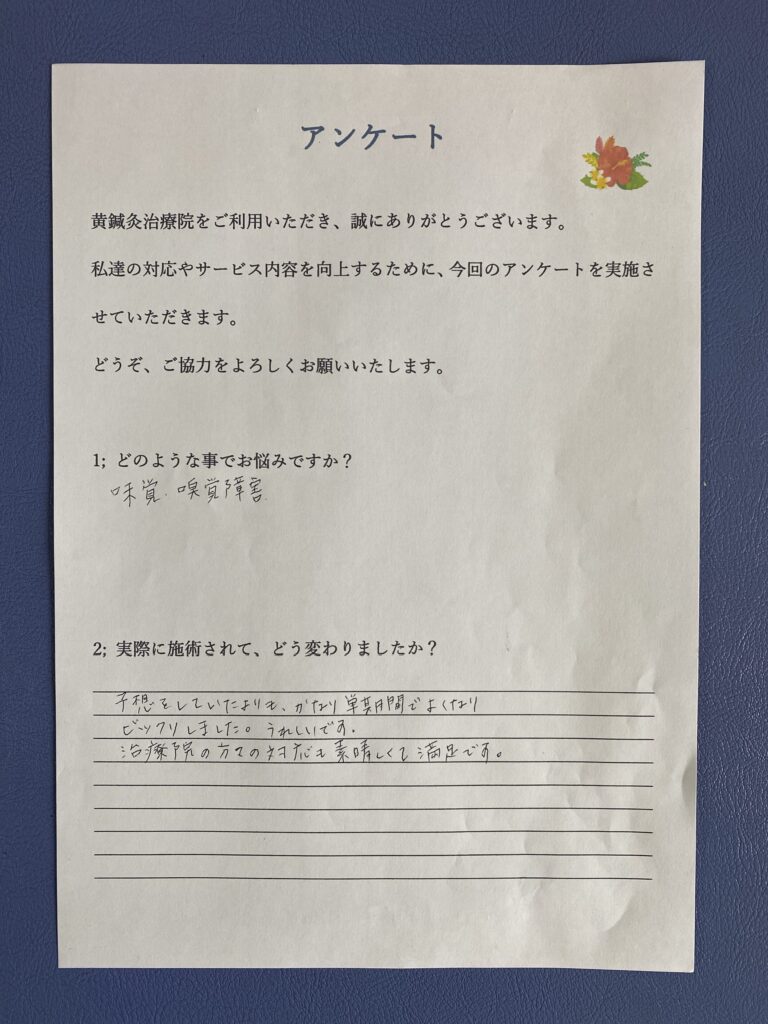 アンケート
黄鍼灸治療院をご利用いただき、誠にありがとうございます。
私達の対応やサービス内容を向上するために、今回のアンケートを実施さ
せていただきます。
どうぞ、ご協力をよろしくお願いいたします。
1; どのような事でお悩みですか？
味覚.嗅覚障害
2; 実際に施術されて、どう変わりましたか？
予想をしていたよりも、かなり単期間でよくなり
ビックリしました。うれしいです.
治療院の方々の対応も素晴しくて満足です。